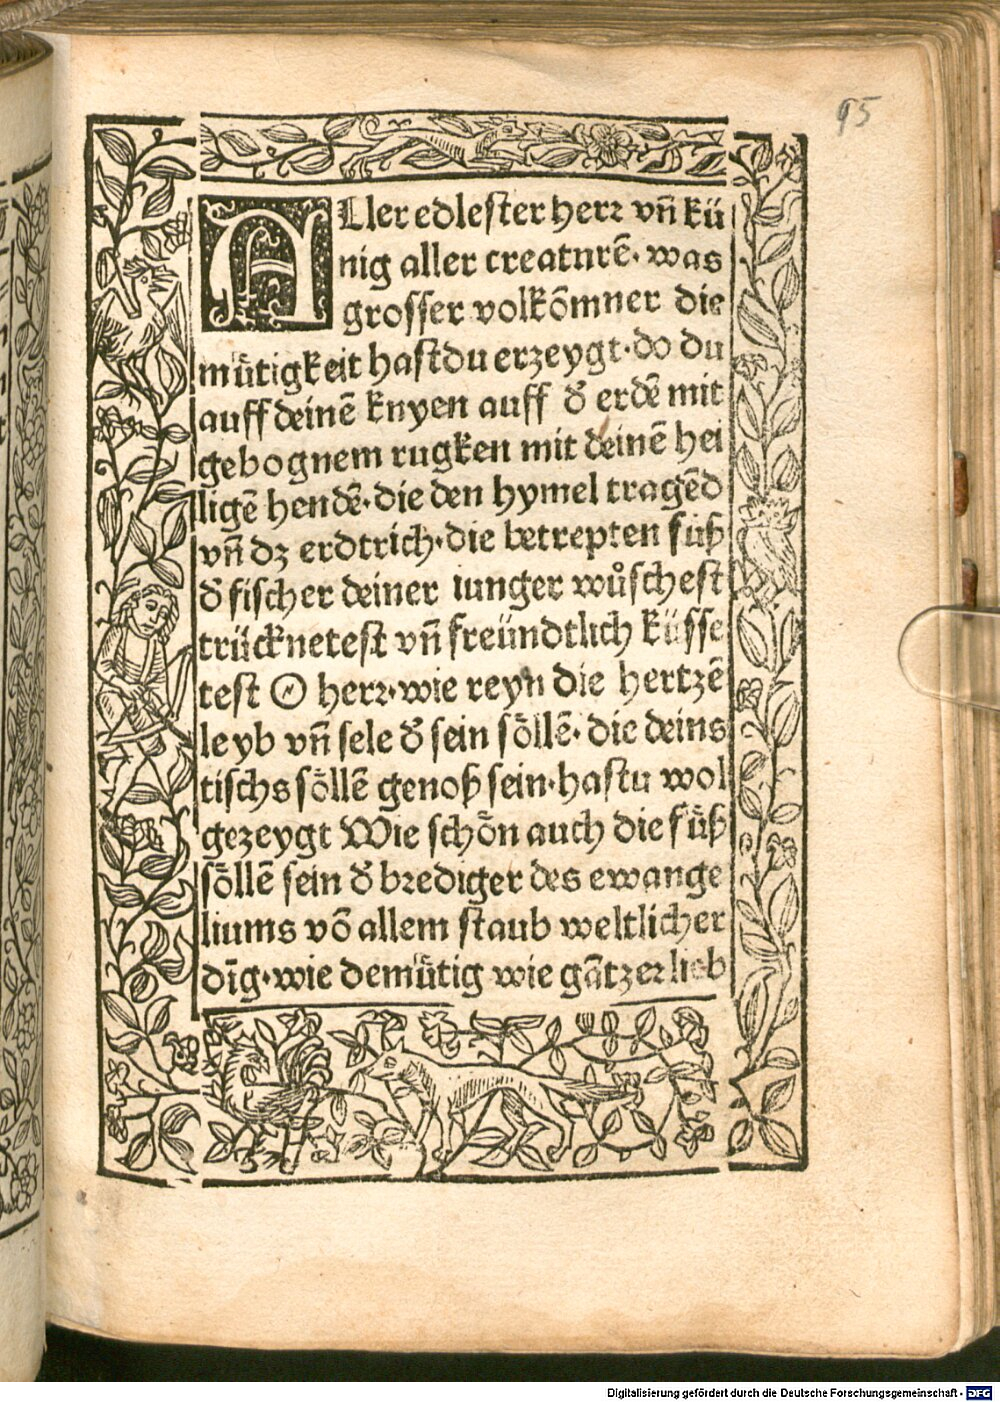 95
ALler edlester herr vn̄ kü
nig aller creaturē. was
grosser volkōmner die
mu̇̈tigkeit hast du erzeygt. do du
auff deinē knyen auff d̕ erdē mit
gebognem rugken mit deinē hei
ligē hendē. die den hymel tragēd
vn̄ dz erdtrich. die betrepten füß
d̕ fischer deiner iunger wůschest
trücknetest vn̄ freündtlich küsse
test O herr. wie reyn die hertzē
leyb vn̄ sele d̕ sein söllē. die deins
tischs söllē genoß sein. hastu wol
gezeygt Wie schön auch die füß
söllē sein d̕ brediger des ewange
liums vō allem staub weltlicher
dīg. wie demütig wie gātzer lieb
Digitalisierung gefördert durch die Deutsche Forschungsgemeinschaft - DFG